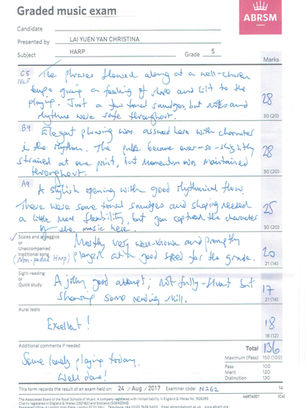 Graded music exam
ABRSM
Candidate
Presented by LAI YUEN YAN CHRISTINA
Subject HARP Grade 5
Marks
C5 The phrases flowed along at a well-chosen
tempo giving a feeling of and lilt to the
playing. Just a few tonal smudges, but notes and
rhythms were safe throughout.
28
30 (20)
B4 Elegant phrasing was assured here with character
in the rhythm. The pulse became ever-so-slightly
strained at one point, but momentum was maintained
throughout.
28
30 (20)
A4 A stylish opening with good rhythmical flow.
There were some tonal smudges and shaping needed
a little more flexibility, but you captured the character
of the music here.
25
30 (20)
Scales and arpeggios
or
Unaccompanied
traditional song
(Non-pedal Harp)
Mostly very well-known and promptly
played at a good speed for the grade.
20
21 (14)
Sight-reading
or
Quick study
A jolly good attempt; not fully-fluent but
showing some reading skill.
17
21 (14)
Aural tests
Excellent!
18
18 (12)
Additional comments if needed
Some lovely playing today.
Well done!
Total 136
Maximum (Pass) 150 (100)
Pass 100
Merit 120
Distinction 130
This form records the result of an exam held on 24 / Aug / 2017 Examiner code N262